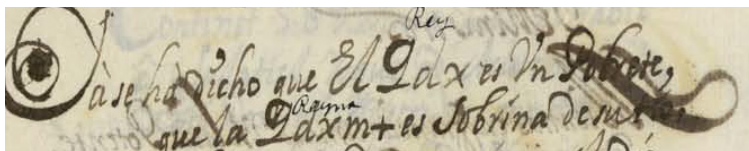 Rey
Ya se hà dicho que El 9dx es Vn Pobrete,
Reyna
que la 9dxm+ es Sobrina de su tio,